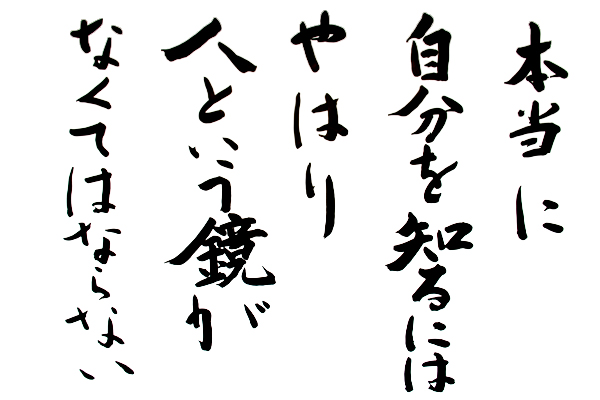 本当に
自分を知るには
やはり
人という鏡が
なくてはならない